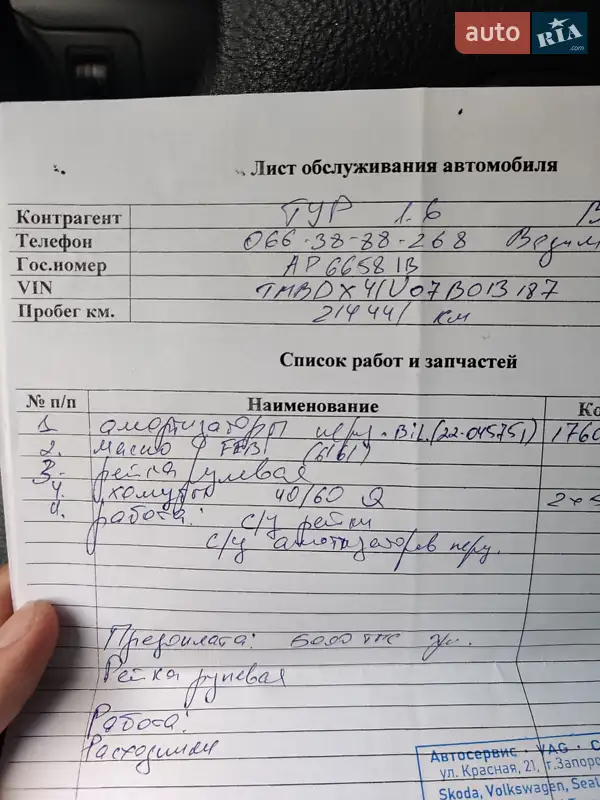 auto RIA .com
Лист обслуживания автомобиля
Контрагент ТУР 1.6 В
Телефон 066-38-88-268 Вадим
Гос.номер АР 6658 ІВ
VIN TMBDX41U07B013187
Пробег км. 214441 км
Список работ и запчастей
№ п/п Наименование Ко
1 амортизаторы перед. BiL.(22-045751) 1760
2. масло FEBI (6161)
3. рейка рулевая
4. хомуты 40/60 2x
4. работа: с/у рейки
с/у амотизаторов перд.
Предоплата: 6000 тыс
Рейка рулевая
Работа:
Расходники
Автосервис · VAG · С
ул. Красная, 21, г.Запоро
Skoda, Volkswagen, Seat